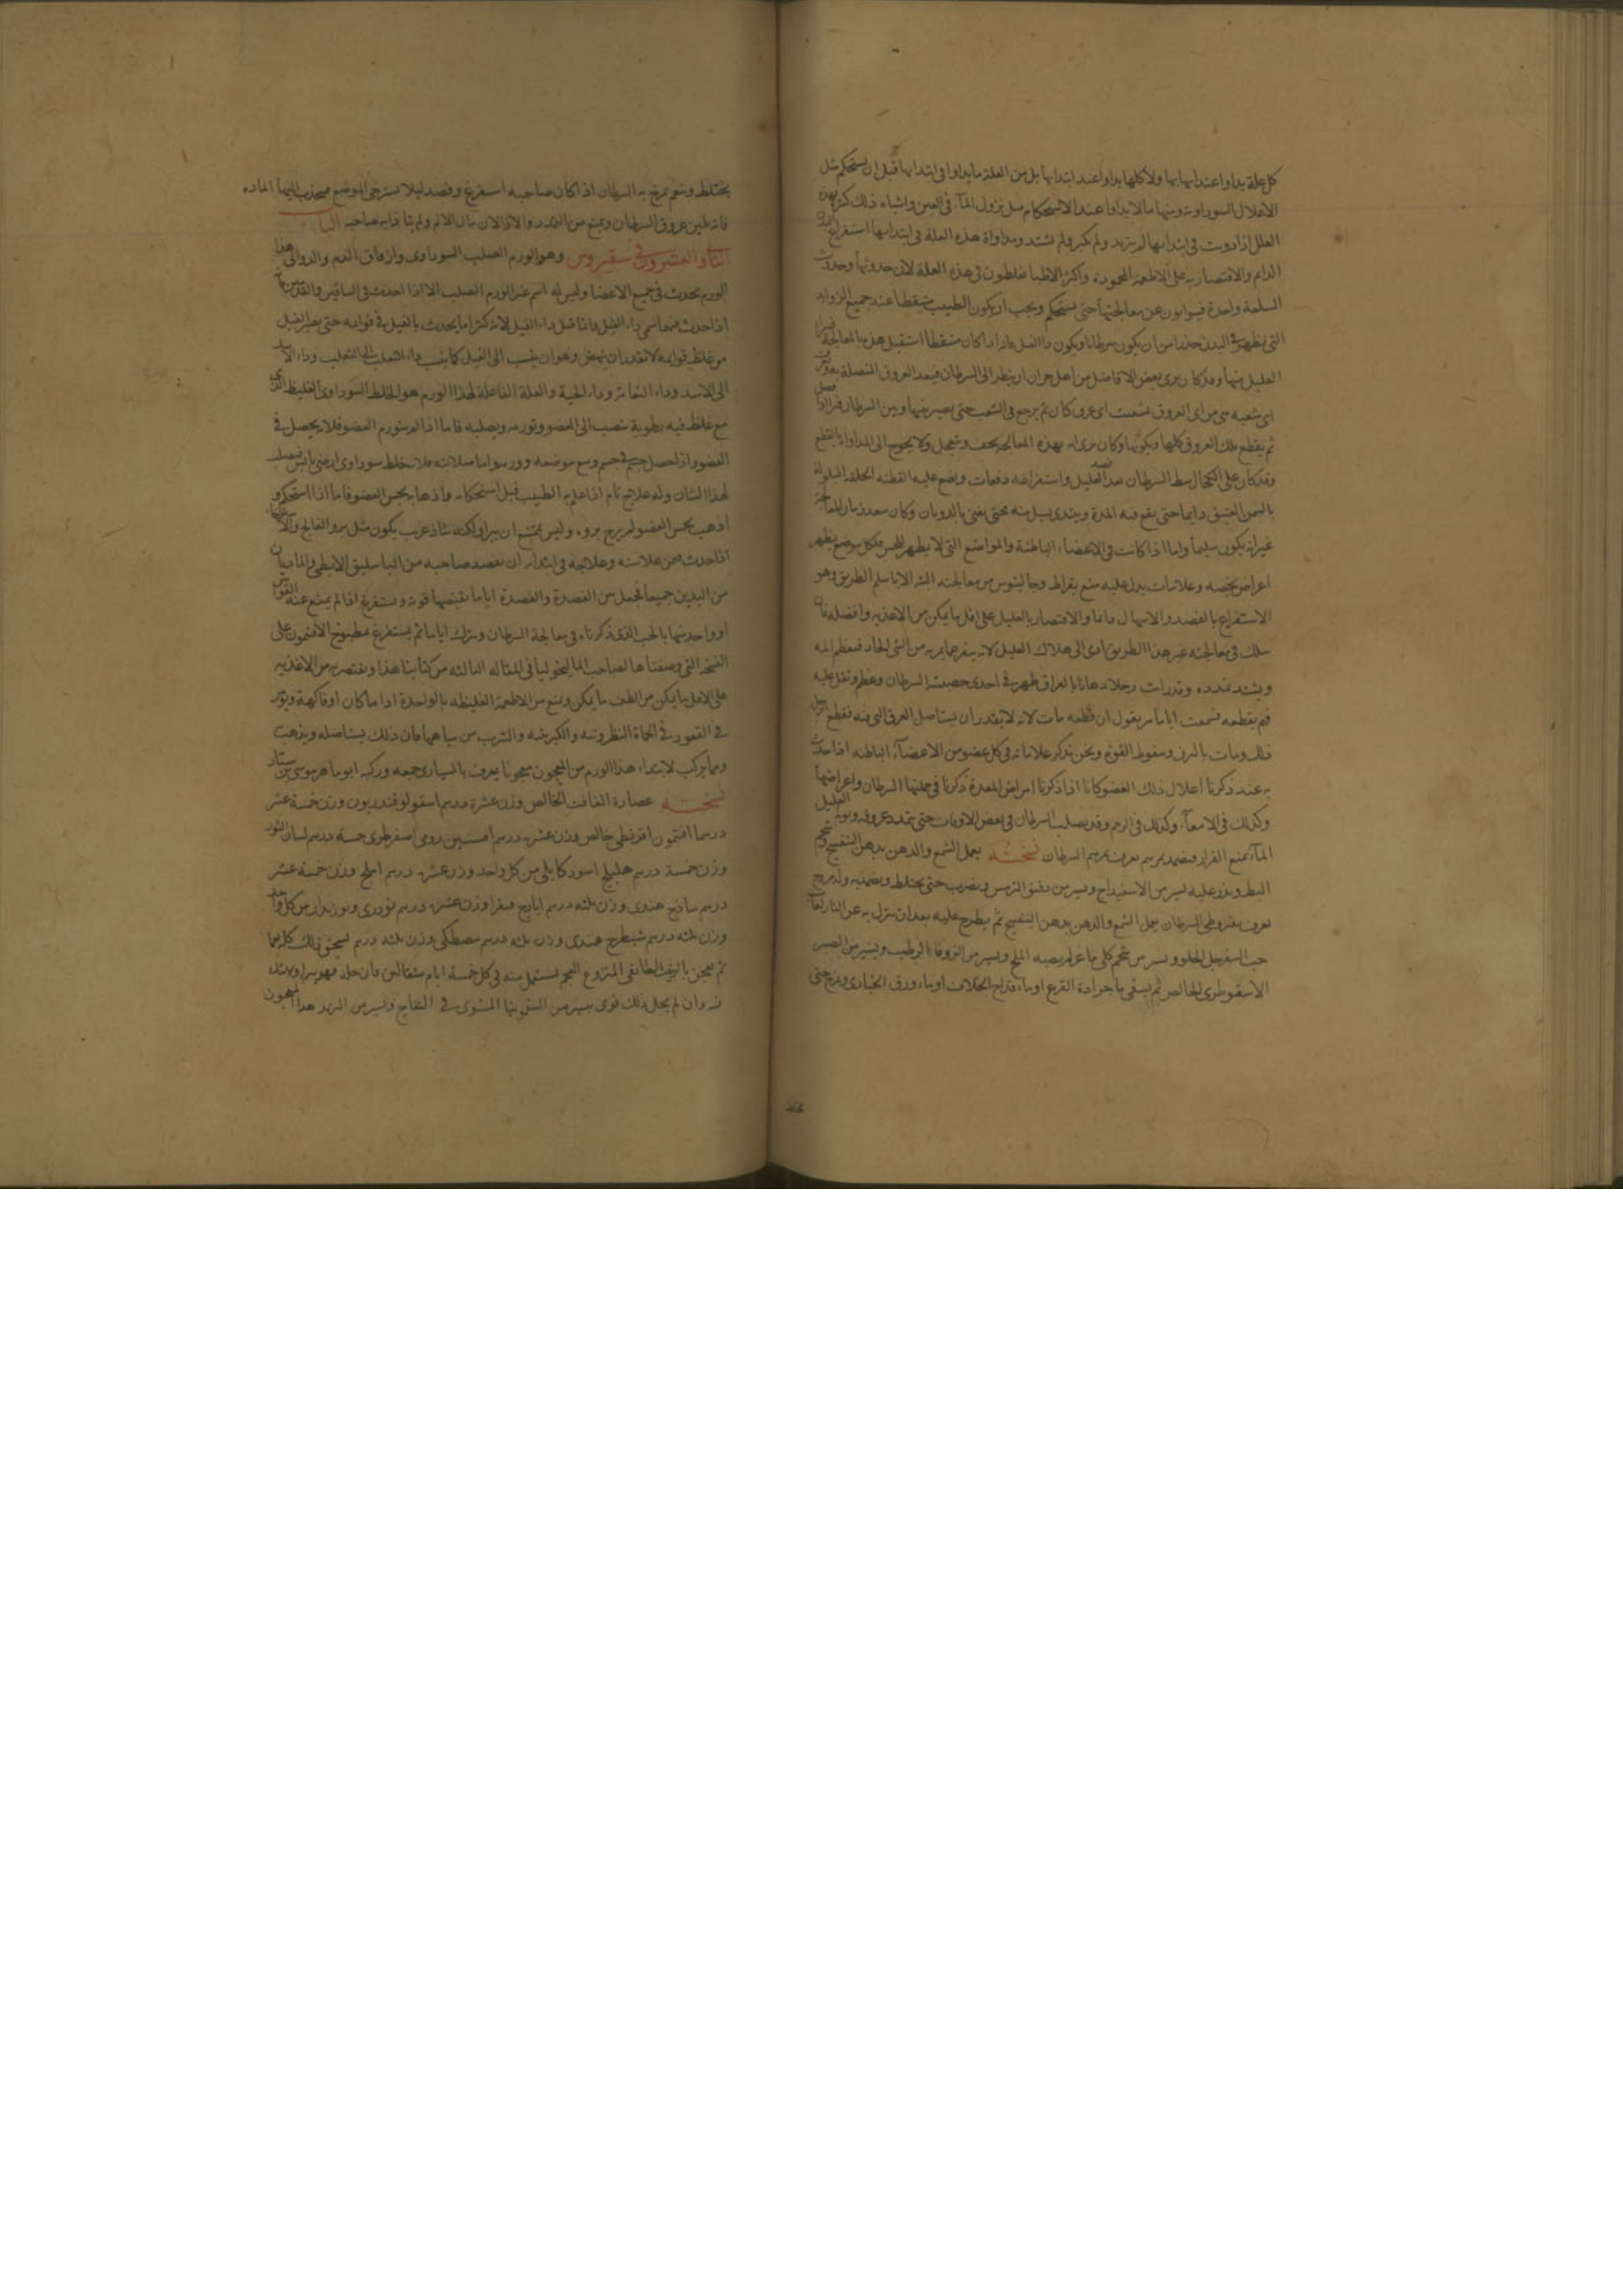 كل علة يداوا عند ابتدائها ولا كلها يداوا عند ابتدائها بل من العلة ما يداوا فى ابتدائها قبل ان يستحكم مثل
الاعلال السوداوية ومنها ما لا يداوا عند الاستحكام مثل نزول المآ فى العين واشباه ذلك كثير وهذه
العلل اذا دوويت فى ابتدائها لم تزيد ولم تكبر ولم تشتد ومداواة هذه العلة فى ابتدائها استفراغ البدن
الدايم والاقتصار به على الاطعمة المحمودة واكثر الاطبا يغلطون فى هذه العلة لان حدوثها وحدوث
السلعة واحدة فيتوانون عن معالجتها حتى يستحكم ويجب ان يكون الطبيب متيقظا عند جميع الزوايد
التى تظهر فى البدن حذرا من ان يكون سرطانا ويكون داا الفيل فاذا كان متيقظا استقبل هذه بالمعالجة
العليل منها وقد كان يرى بعض الافاضل من اهل حران ان ينظر الى السرطان فيعد العروق المتصلة به
اى شعبه هى من اى العروق تشعبت اى عرق كان ثم يرجع فى الشعب حتى يصير بينها وبين السرطان
ثم يقطع تلك العروق كلها ويكويها وكان يرى انه بهذه المعالجة يجف ويضمحل ولا يحوج الى المداواة بالقطع
وقد كان على الكحال يبط السرطان بعد فصد العليل واستفراغه دفعات ويضع عليه القطنه الخلقه المبلولة
بالسمن العتيق دايما حتى يقع فيه المدة ويبتدى يسيل منه حتى يفنى بالذوبان وكان
غير انه يكون سليما واما اذا كانت فى الاعضاء الباطنة والمواضع التى لا يظهر للحس فلكل موضع يظهر
اعراض يخصه وعلامات يدل عليه منع بقراط وجالينوس من معالجته البته الا ما سلم الطريق وهو
الاستفراغ بالفصد والاسهال دائما والاقتصار بالعليل على اقل ما يمكن من الاغذيه وافضله فان
سلك فى معالجته غير هذا الطريق ادى الى هلاك العليل لانه من الشى الحاد فيعظم المه
ويشتد تمدده وقد رات رجلا دهانا بالعراق ظهر فى احدى خصيتيه السرطان وعظم وثقل عليه
فهم بقطعه فسمعت ابا ماهر يقول ان قطعه مات لانه لا يقدر ان يستاصل العرق التى فيه فقطع الرجل
ذلك ومات بالنزف وسقوط القوة ونحن نذكر علاماته فى كل عضو من الاعضآء الباطنه اذا حدث
به عند ذكرنا اعلال ذلك العضو كانا اذا ذكرنا امراض المعدة ذكرنا فى جملتها السرطان واعراضها
وكذلك فى الامعآء وكذلك فى الرحم وقد يصلب السرطان فى بعض الاوقات حتى يتمدد عروقه ويولم العليل
الماً يمنع القرار فيضمد بمرهم يعرف بمرهم السرطان نسخته يعمل الشمع والدهن بدهن البنفسج وشحم
البط ويذر عليه يسير من الاسفيداج ويسير من دقيق الترمس ويضرب حتى يختلط ويضمد به وله مروخ
يعرف بقيروطى السرطان يعمل الشمع والدهن بدهن البنفسج ثم يطرح عليه بعد ان ينزل به عن النار لعاب
حب السفرجل الحلو ويسير من شحم كلى ماعز لم يصبه الملح ويسير من الزوفا الرطب ويسير من الصبر
الاسقوطرى الخالص ثم يسقى ماء جرادة القرع او ماء قداح الخلاف او ماء ورق الخبازى ويمزج حتى
يختلط وينعم يمرخ به السرطان اذا كان صاحبه استفرغ وفصد ليلا يسترخى الموضع فيجذب اليها الماده
فانه يلين عروق السرطان ويمنع من التمدد والاذا لان مال الالم ولم صاحبه الباب
الثانى والعشرون فى سقيروس وهو الورم الصلب السوداوى وارفاق الدم والدوالى هذا
الورم يحدث فى جميع الاعضا وليس له اسم غير الورم الصلب الا اذا احدث فى الساقين والقدمين فانه
اذا حدث فيهما سمى داء الفيل وانما قيل داء الفيل لانه كثيرا ما يحدث بالفيل فى قوايمه حتى يصير الفيل
من غلظ قوايمه لا يقدر ان ينهض وهو ان ينسب الى الفيل كما ينسب داء الثعلب الى الثعلب وداء الاسد
الى الاسد وداء الحية والعلة الفاعلة لهذا الورم هو الخلط السوداوى الغليظ الذى
مع غلظ فيه رطوبة تنصب الى العضو وتورمه ويصلبه فاما اذا لم يتورم العضو فلانه يحصل فى
العضو واذا حصل جسم فى جسم وسع موضعه وورمه واما صلابته فلانه خلط سوداوى ارضى يابس فيصلب
لهذا الشان وله علاج تام اذا علم به الطبيب قبل استحكامه واذهابه بحس العضو فاما اذا استحكم و
اذهب بحس العضو لم يرج بروه وليس يمتنع ان يبرا ولكنه شاذ غريب يكون مثل برو الفالج
اذا حدث فمن علاسته وعلاجه فى ابتدائه ان يفصد صاحبه من الباسليق الابطى والماديان
من اليدين جميعا تجعل بين الفصدة والفصدة اياما تقتضيها قوته ويستفرغ اذا لم يمنع عنه
او واحد منها بالحب الذى ذكرناه فى معالجة السرطان ويترك اياما ثم يستفرغ بمطبوخ الافتيمون على
النسخة التى وصفناها لصاحب الماليخوليا فى المقاله الثالثه من كتابنا هذا ويقتصر به من الاغذيه
على الاقل ما يمكن من الطف ما يمكن ويمنع من الاطعمة الغليظه بالواحدة اداما كان او فاكهة
فى القعود فى الحماة النظرونيه والكبريتيه والشرب من مياهها فان ذلك يستاصله ويذهب
ومما يركب لابتداء هذا الورم من المعجون معجونا يعرف جمعه وركبه ابو ماهر موسى بن سيار
نسخته عصارة الغافت الخالص وزن عشرة درهم اسقولوقندريون وزن خمسة عشر
درهما افتيمون اقريطى خالص وزن عشرة درهم افسنتين رومى اصفر طرى خمسة درهم لسان الثور
وزن خمسة درهم هليلج اسود كابلى من كل واحد وزن عشرة درهم املج وزن خمسة عشر
درهم ساذج هندى وزن ثلثه درهم ايارج فيقرا وزن عشرة درهم تودرى من كل واحد
وزن ثلثه درهم شيطرج هندى وزن ثلثه درهم مصطكى وزن ثلثه درهم يسحق ذلك كله
ثم يعجن بالزبيب الطائفى المنزوع العجم يستعمل منه فى كل خمسة ايام مثقالين فان حله فهو
وان لم يحل ذلك قوى بيسير من السقمونيا المشوى فى التفاح ويسير من التربد هذا المعجون